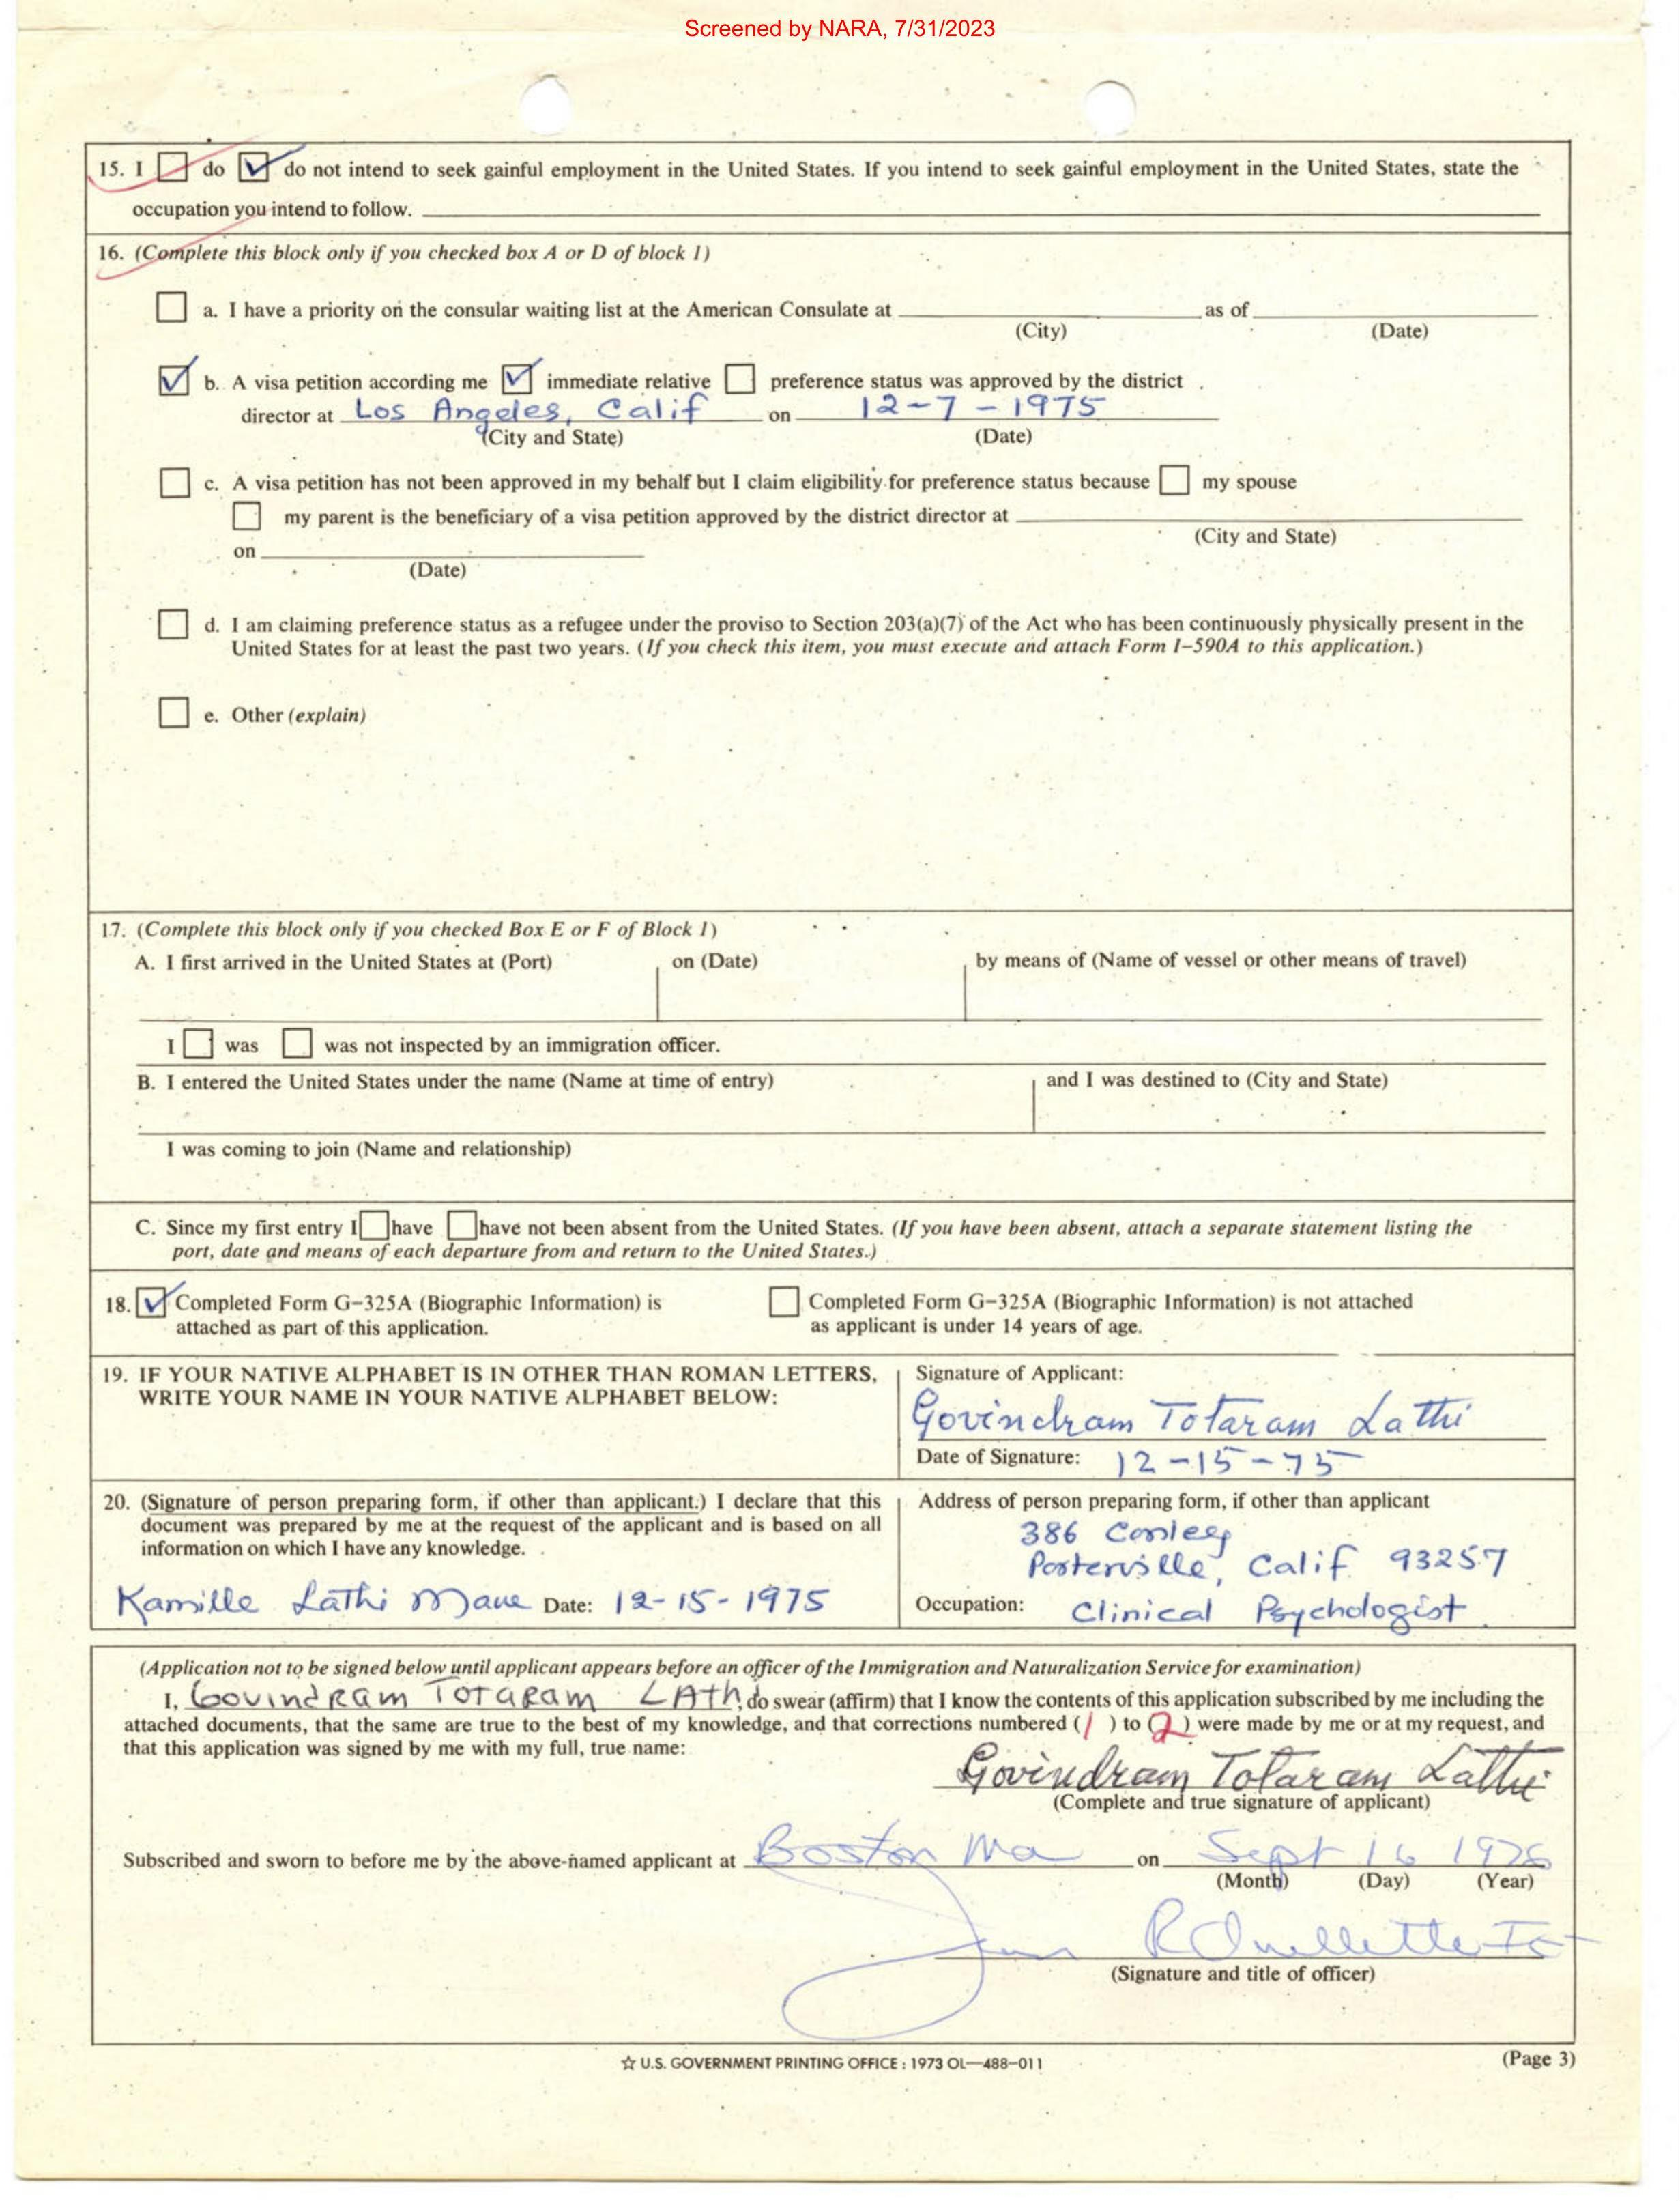 Screened by NARA, 7/31/2023
15. I do do not intend to seek gainful employment in the United States. If you intend to seek gainful employment in the United States, state the
occupation you intend to follow.
16. (Complete this block only if you checked box A or D of block 1)
a. I have a priority on the consular waiting list at the American Consulate at as of
(City) (Date)
b. A visa petition according me immediate relative preference status was approved by the district
director at Los Angeles, Calif on 12-7-1975
(City and State) (Date)
c. A visa petition has not been approved in my behalf but I claim eligibility for preference status because my spouse
my parent is the beneficiary of a visa petition approved by the district director at
(City and State)
on
(Date)
d. I am claiming preference status as a refugee under the proviso to Section 203(a)(7) of the Act who has been continuously physically present in the
United States for at least the past two years. (If you check this item, you must execute and attach Form I-590A to this application.)
e. Other (explain)
17. (Complete this block only if you checked Box E or F of Block 1)
A. I first arrived in the United States at (Port) on (Date) by means of (Name of vessel or other means of travel)
I was was not inspected by an immigration officer.
B. I entered the United States under the name (Name at time of entry) and I was destined to (City and State)
I was coming to join (Name and relationship)
C. Since my first entry I have have not been absent from the United States. (If you have been absent, attach a separate statement listing the
port, date and means of each departure from and return to the United States.)
18. Completed Form G-325A (Biographic Information) is Completed Form G-325A (Biographic Information) is not attached
attached as part of this application. as applicant is under 14 years of age.
19. IF YOUR NATIVE ALPHABET IS IN OTHER THAN ROMAN LETTERS,
WRITE YOUR NAME IN YOUR NATIVE ALPHABET BELOW:
Signature of Applicant:
Govindram Totaram Lathi
Date of Signature: 12-15-75
20. (Signature of person preparing form, if other than applicant.) I declare that this
document was prepared by me at the request of the applicant and is based on all
information on which I have any knowledge.
Kamille Lathi Mane Date: 12-15-1975
Address of person preparing form, if other than applicant
386 Conley
Porterville, Calif 93257
Occupation: Clinical Psychologist
(Application not to be signed below until applicant appears before an officer of the Immigration and Naturalization Service for examination)
I, Govindram TOTARAM LAthi, do swear (affirm) that I know the contents of this application subscribed by me including the
attached documents, that the same are true to the best of my knowledge, and that corrections numbered (1) to (2) were made by me or at my request, and
that this application was signed by me with my full, true name:
Govindram Totaram Lathi
(Complete and true signature of applicant)
Subscribed and sworn to before me by the above-named applicant at Boston Ma on Sept 16 1976
(Month) (Day) (Year)
R Ouellette
(Signature and title of officer)
☆ U.S. GOVERNMENT PRINTING OFFICE : 1973 OL—488-011
(Page 3)